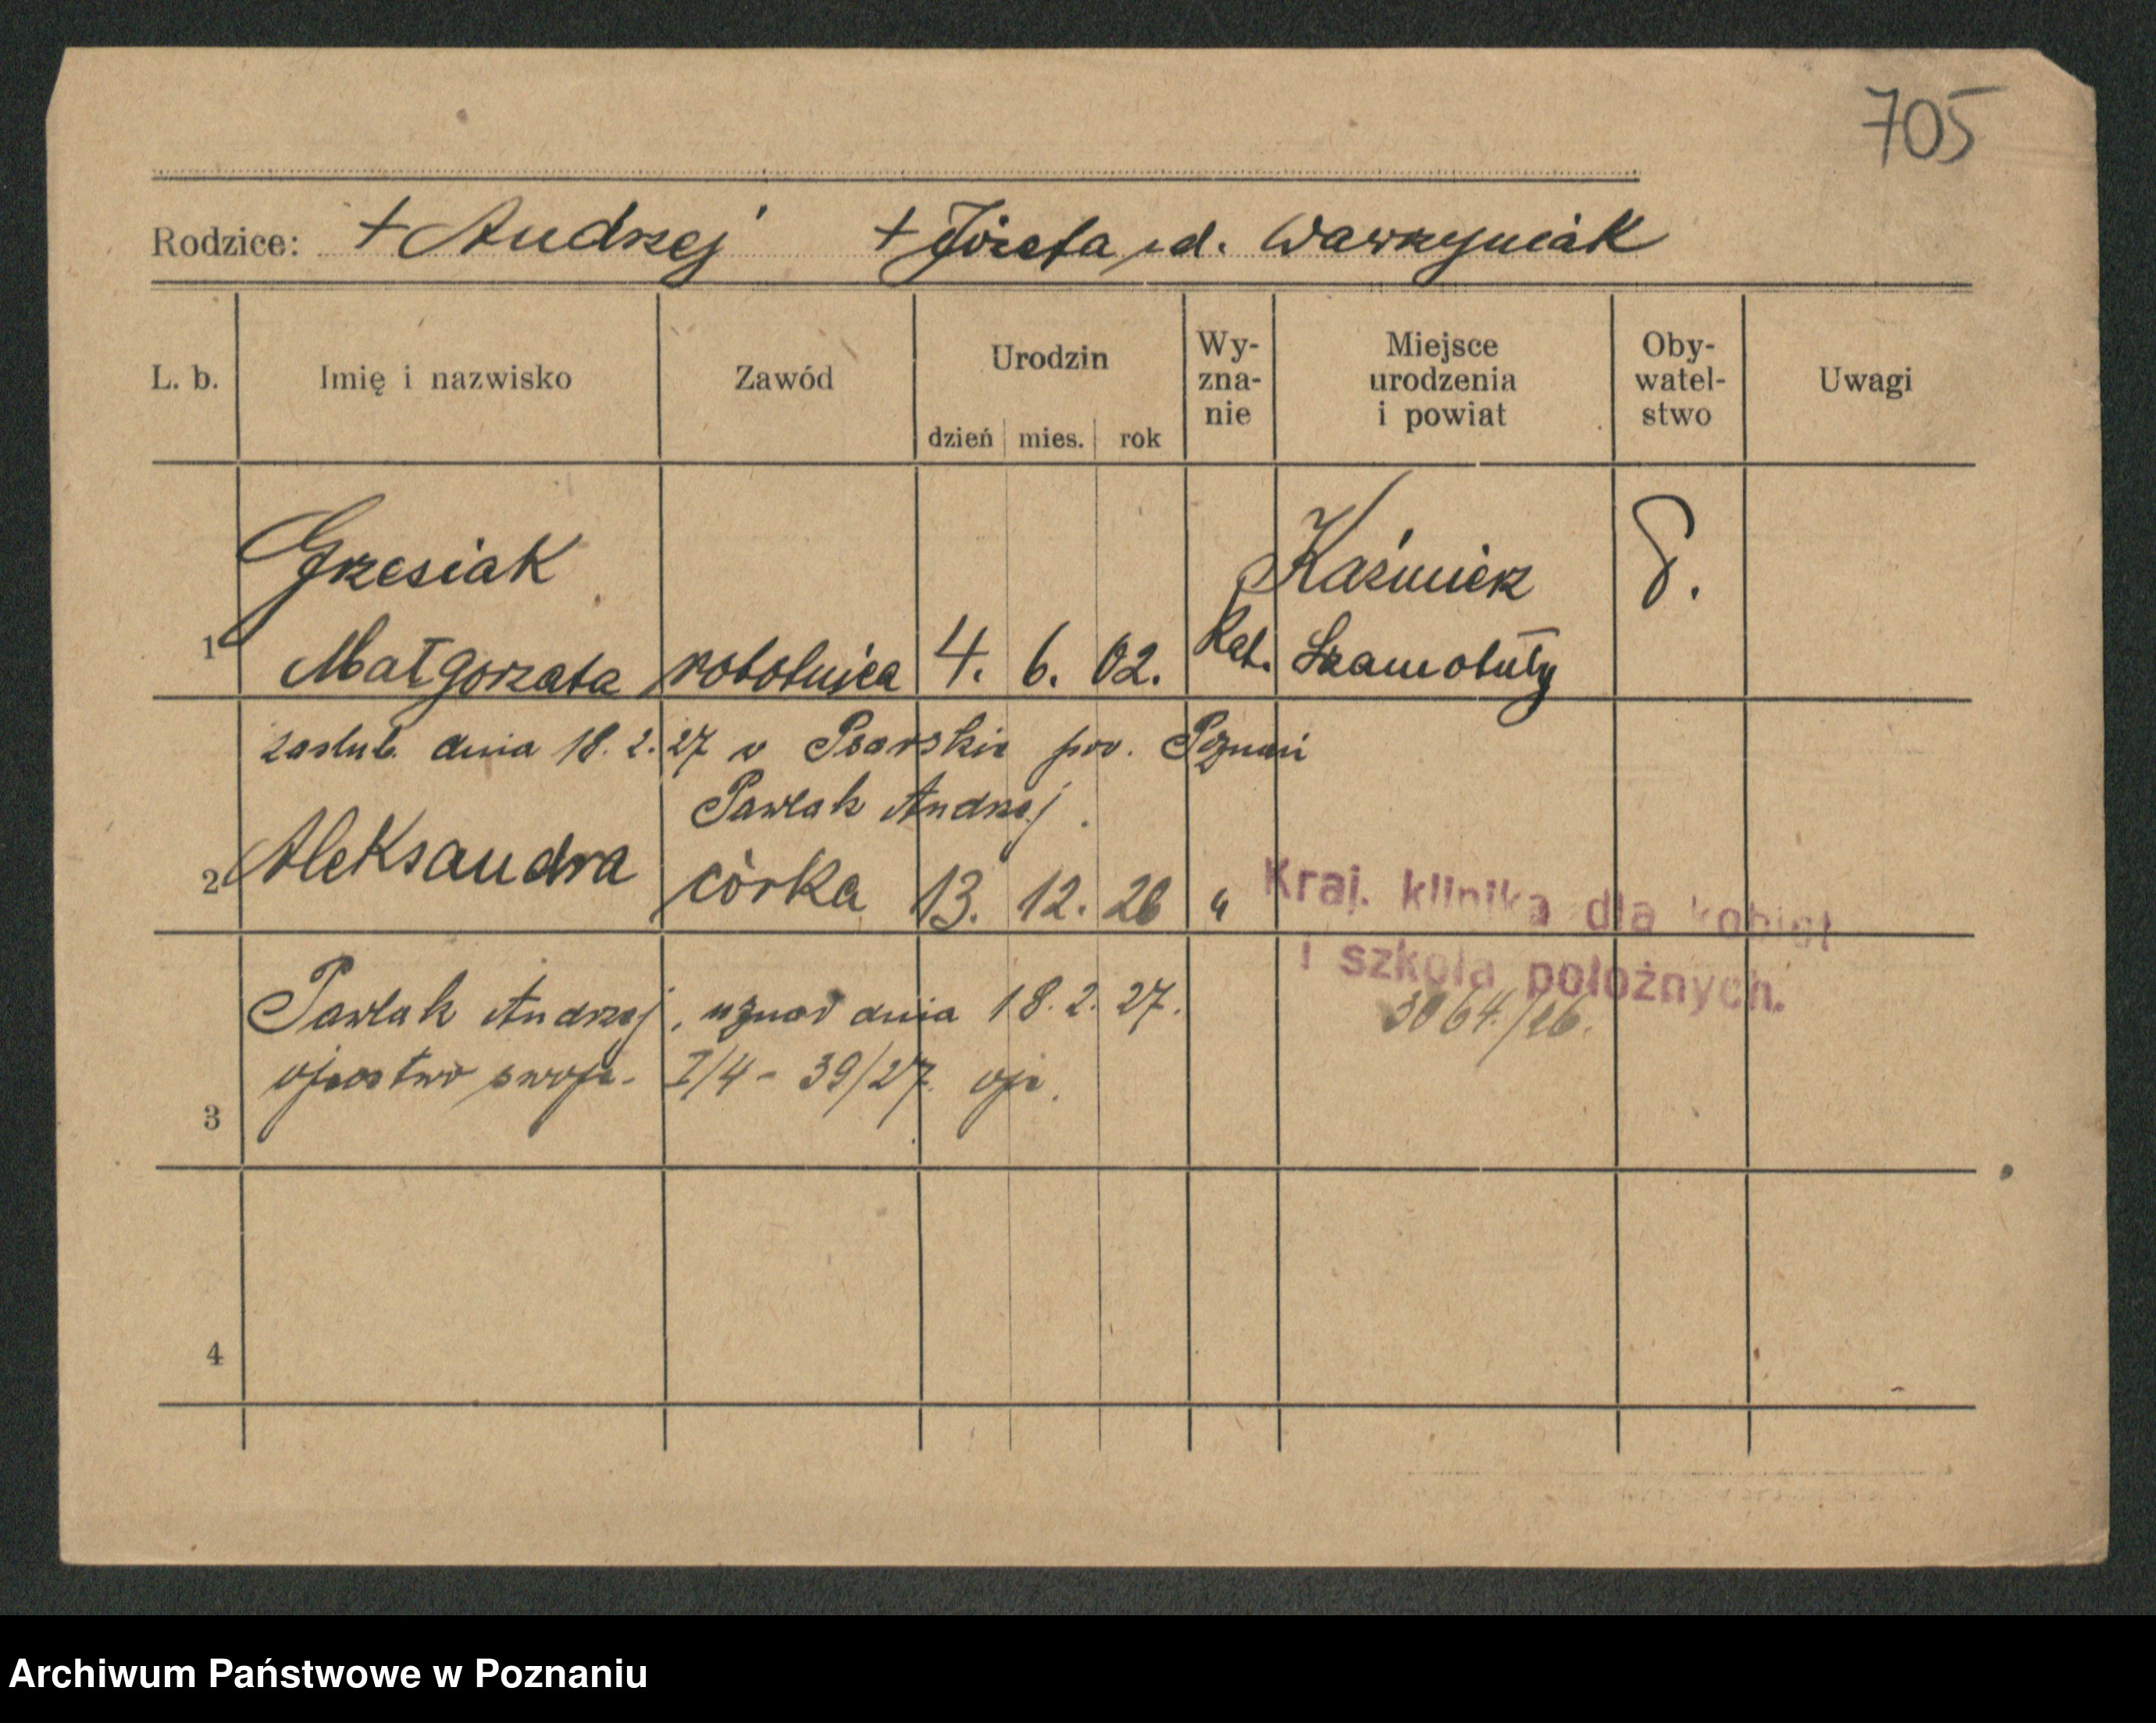 705
Rodzice: + Andrzej + Józefa z d. Wawrzyniak
L. b. Imię i nazwisko Zawód Urodzin dzień mies. rok Wy-zna-nie Miejsce urodzenia i powiat Oby-watel-stwo Uwagi
Grzesiak Kaźmierz
1 Małgorzata robotnica 4. 6. 02. Kat. Szamotuły
zaślub. dnia 18. 2. 27 w Psarskie pow. Poznań
Pawlak Andrzej.
2 Aleksandra córka 13. 12. 26 " Kraj. klinika dla kobiet
i szkoła położnych.
Pawlak Andrzej, uznał dnia 18. 2. 27. 3064/26.
ojcostwo swoje - I/4 - 39/27.
3
4
Archiwum Państwowe w Poznaniu